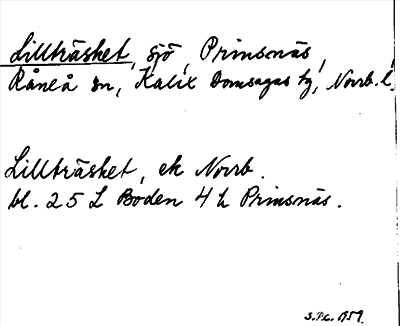 Lillträsket, sjö, Prinsnäs,
Råneå sn, Kalix Domsagas tg, Norrb. l.
Lillträsket, ek Norrb.
bl. 25 L Boden 4 h Prinsnäs.
S.P.C. 1959.